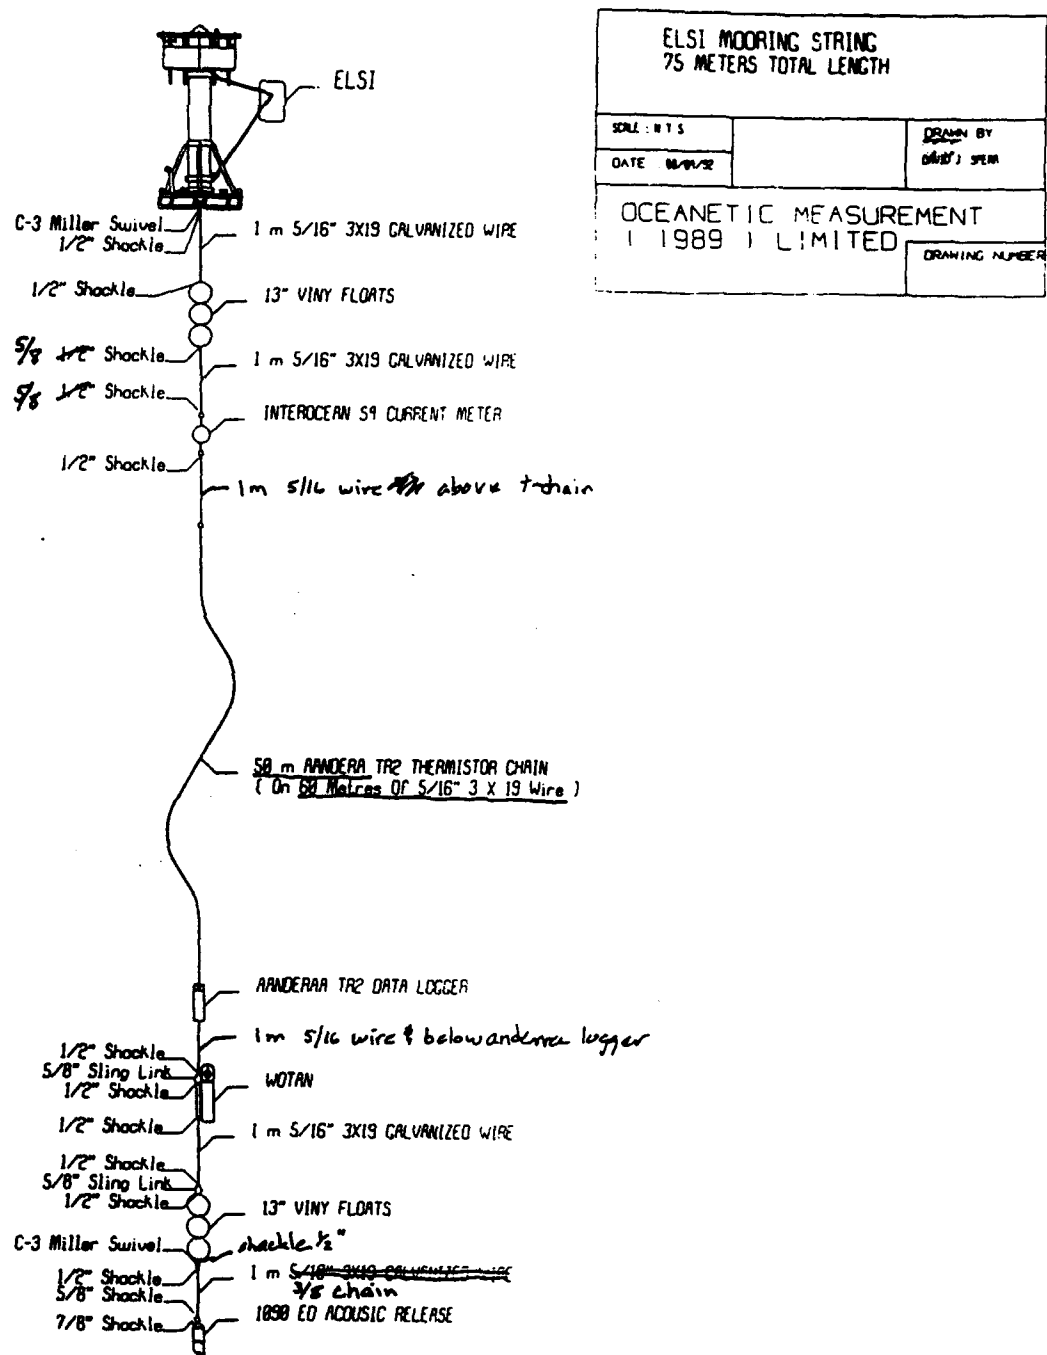 ELSI MOORING STRING
75 METERS TOTAL LENGTH
SCALE : N T S
DATE
DRAWN BY
OCEANETIC MEASUREMENT
( 1989 ) LIMITED
DRAWING NUMBER
ELSI
C-3 Miller Swivel
1/2" Shackle
1 m 5/16" 3X19 GALVANIZED WIRE
1/2" Shackle
13" VINY FLOATS
5/8 1/2" Shackle
1 m 5/16" 3X19 GALVANIZED WIRE
5/8 1/2" Shackle
INTEROCEAN S4 CURRENT METER
1/2" Shackle
1m 5/16 wire above t-chain
50 m AANDERA TR2 THERMISTOR CHAIN
( On 60 Metres Of 5/16" 3 X 19 Wire )
AANDERAA TR2 DATA LOGGER
1m 5/16 wire below anderraa logger
1/2" Shackle
5/8" Sling Link
1/2" Shackle
WOTAN
1/2" Shackle
1 m 5/16" 3X19 GALVANIZED WIRE
1/2" Shackle
5/8" Sling Link
1/2" Shackle
13" VINY FLOATS
C-3 Miller Swivel
shackle 1/2"
1/2" Shackle
1 m 5/16" 3X19 GALVANIZED WIRE
3/8 chain
5/8" Shackle
7/8" Shackle
1090 ED ACOUSIC RELEASE